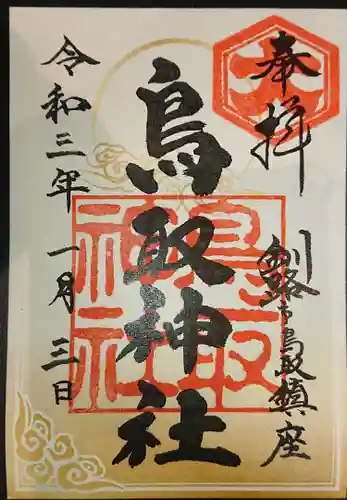 奉拝
釧路市鳥取鎮座
鳥取神社
鳥取
神社
令和三年一月三日